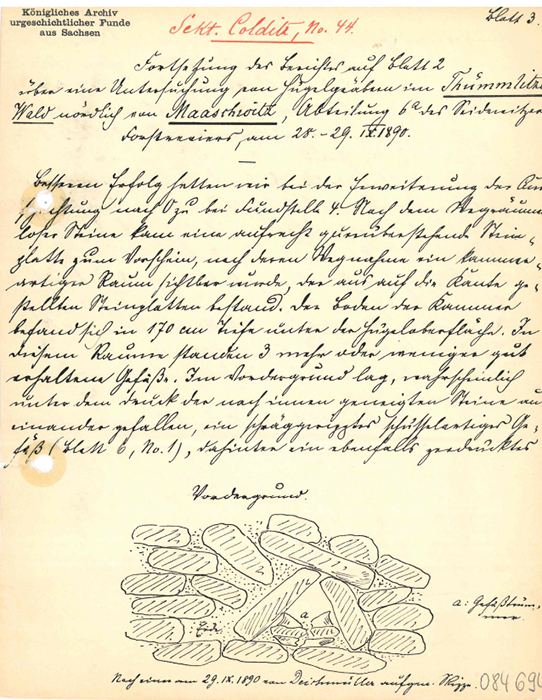 Königliches Archiv
urgeschichtlicher Funde
aus Sachsen
Blatt 3.
Sekt. Colditz, No. 44.
Fortsetzung des Berichtes auf Blatt 2
über eine Untersuchung von Hügelgräbern im Thümmlitzer
Wald nördlich von Maaschwitz, Abteilung 6a des Seidewitzer
Forstreviers, am 28.-29. IX. 1890.
Besseren Erfolg hatten wir bei der Erweiterung der Aus-
schachtung nach O zu bei Fundstelle 4. Nach dem Wegräumen
loser Steine kam eine aufrecht querüberstehende Stein-
platte zum Vorschein, nach deren Wegnahme ein kammer-
artiger Raum sichtbar wurde, der aus auf die Kante ge-
stellten Steinplatten bestand. Der Boden der Kammer
befand sich in 170 cm Tiefe unter der Hügeloberfläche. In
diesem Raume standen 3 mehr oder weniger gut
erhaltene Gefäße. Im Vordergrund lag, wahrscheinlich
unter dem Druck der nach innen geneigten Steine aus
einander gefallen, ein schräggeripptes schüsselartiges Ge-
fäß (Blatt 6, No. 1), dahinter ein ebenfalls zerdrücktes
Vordergrund.
a
Erde
a: Gefäßtrüm-
mer.
Nach einer am 29. IX. 1890 von Deichmüller aufgen. Skizze.
084694